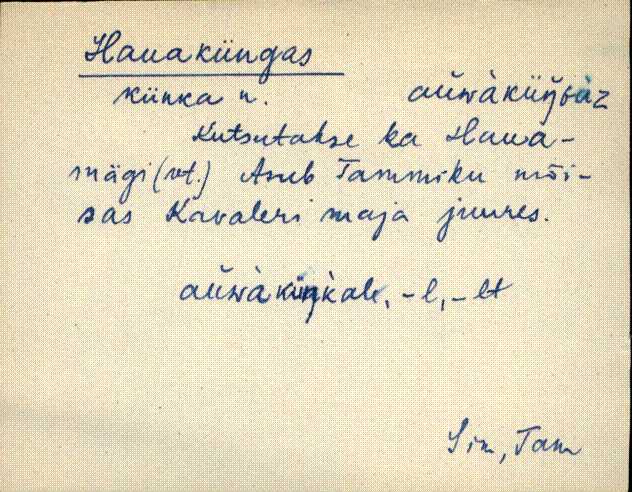 Hauaküngas
künka n. aŭwàküŋ̀GàZ
Kutsutakse ka Haua-
mägi (vt.) Asub Tammiku mõi-
sas Kavaleri maja juures.
aŭwàküŋ̀kale, -l, -lt
Sim, Tam